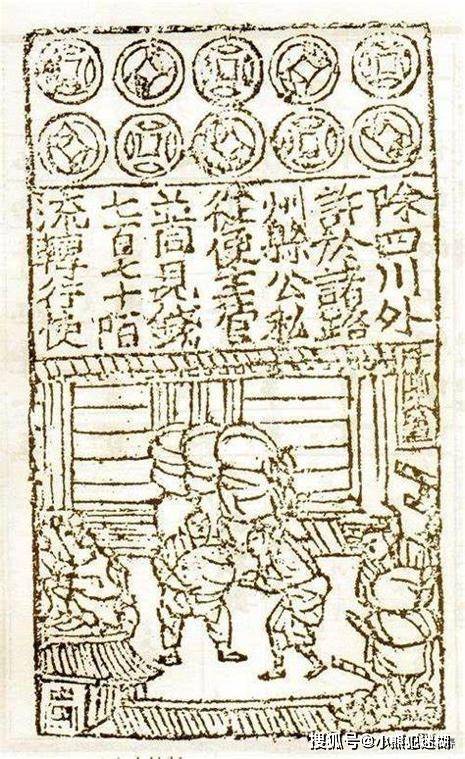 除四川外
許於諸路
州縣公私
從便主管
並同見錢
七百七十陌
流轉行使
搜狐号@小熊犯迷糊